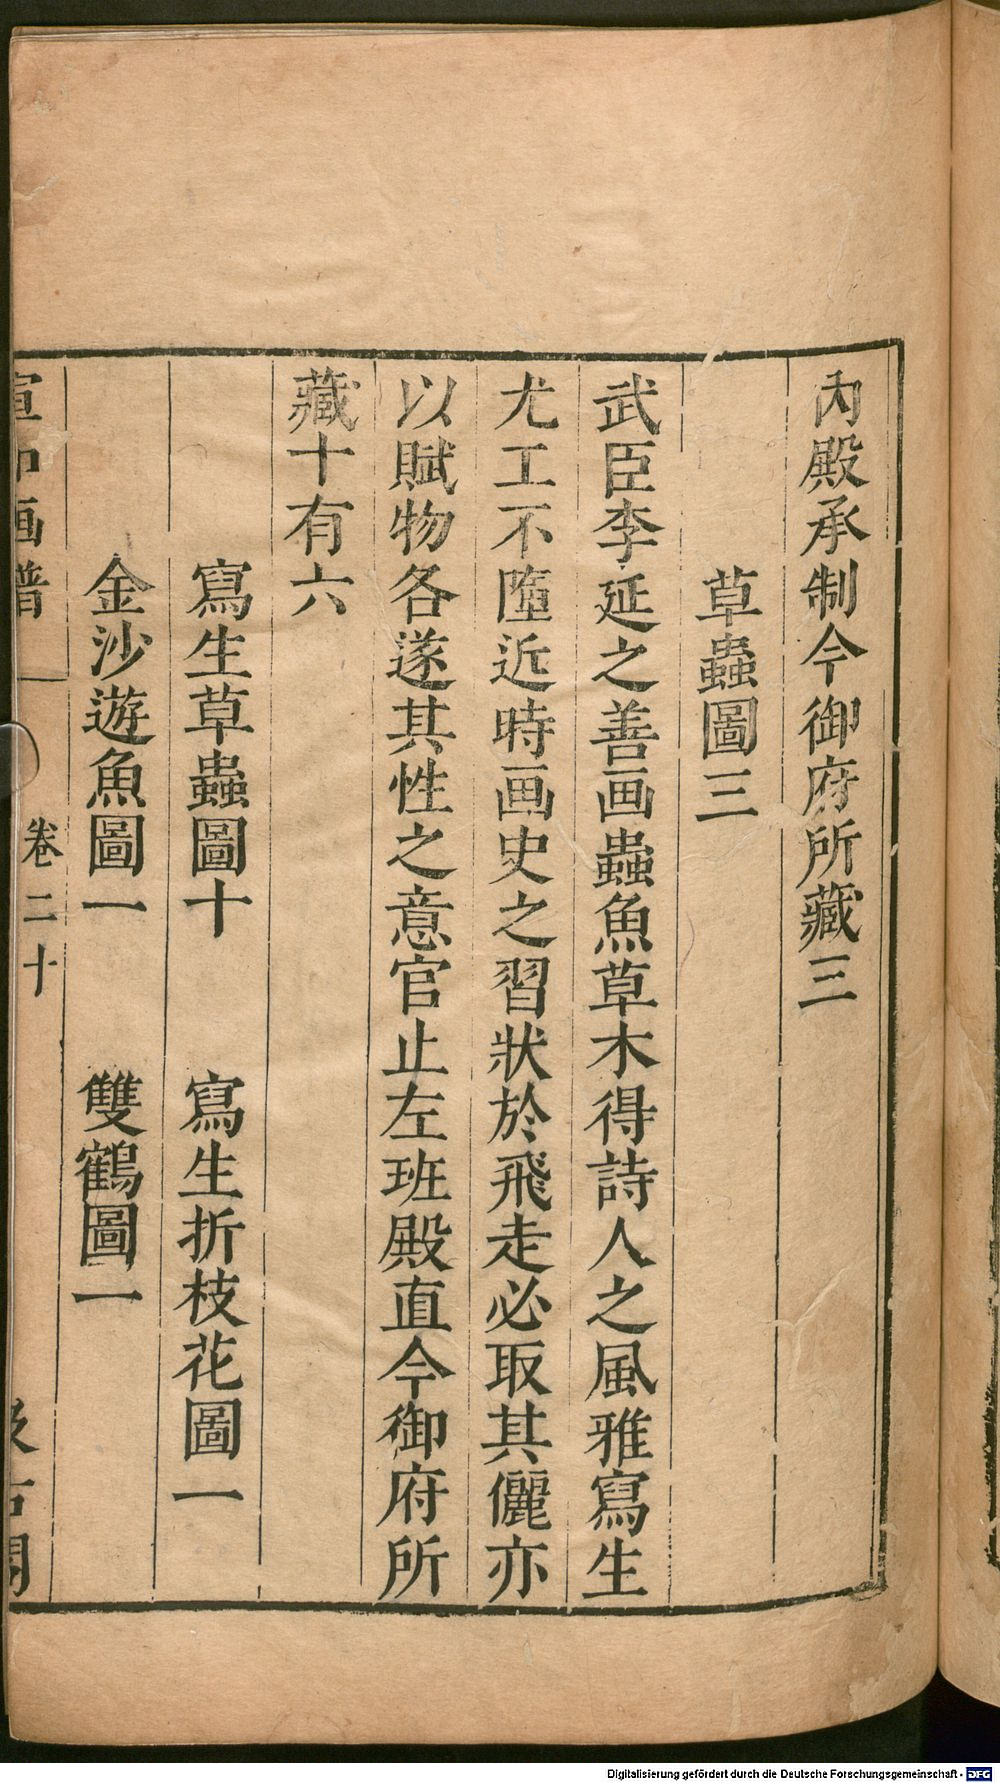 內殿承制今御府所藏三
草蟲圖三
武臣李延之善画蟲魚草木得詩人之風雅寫生
尤工不墮近時画史之習狀於飛走必取其儷亦
以賦物各遂其性之意官止左班殿直今御府所
藏十有六
寫生草蟲圖十 寫生折枝花圖一
金沙遊魚圖一 雙鶴圖一
宣和画譜 卷二十 汲古閣
Digitalisierung gefördert durch die Deutsche Forschungsgemeinschaft - DFG